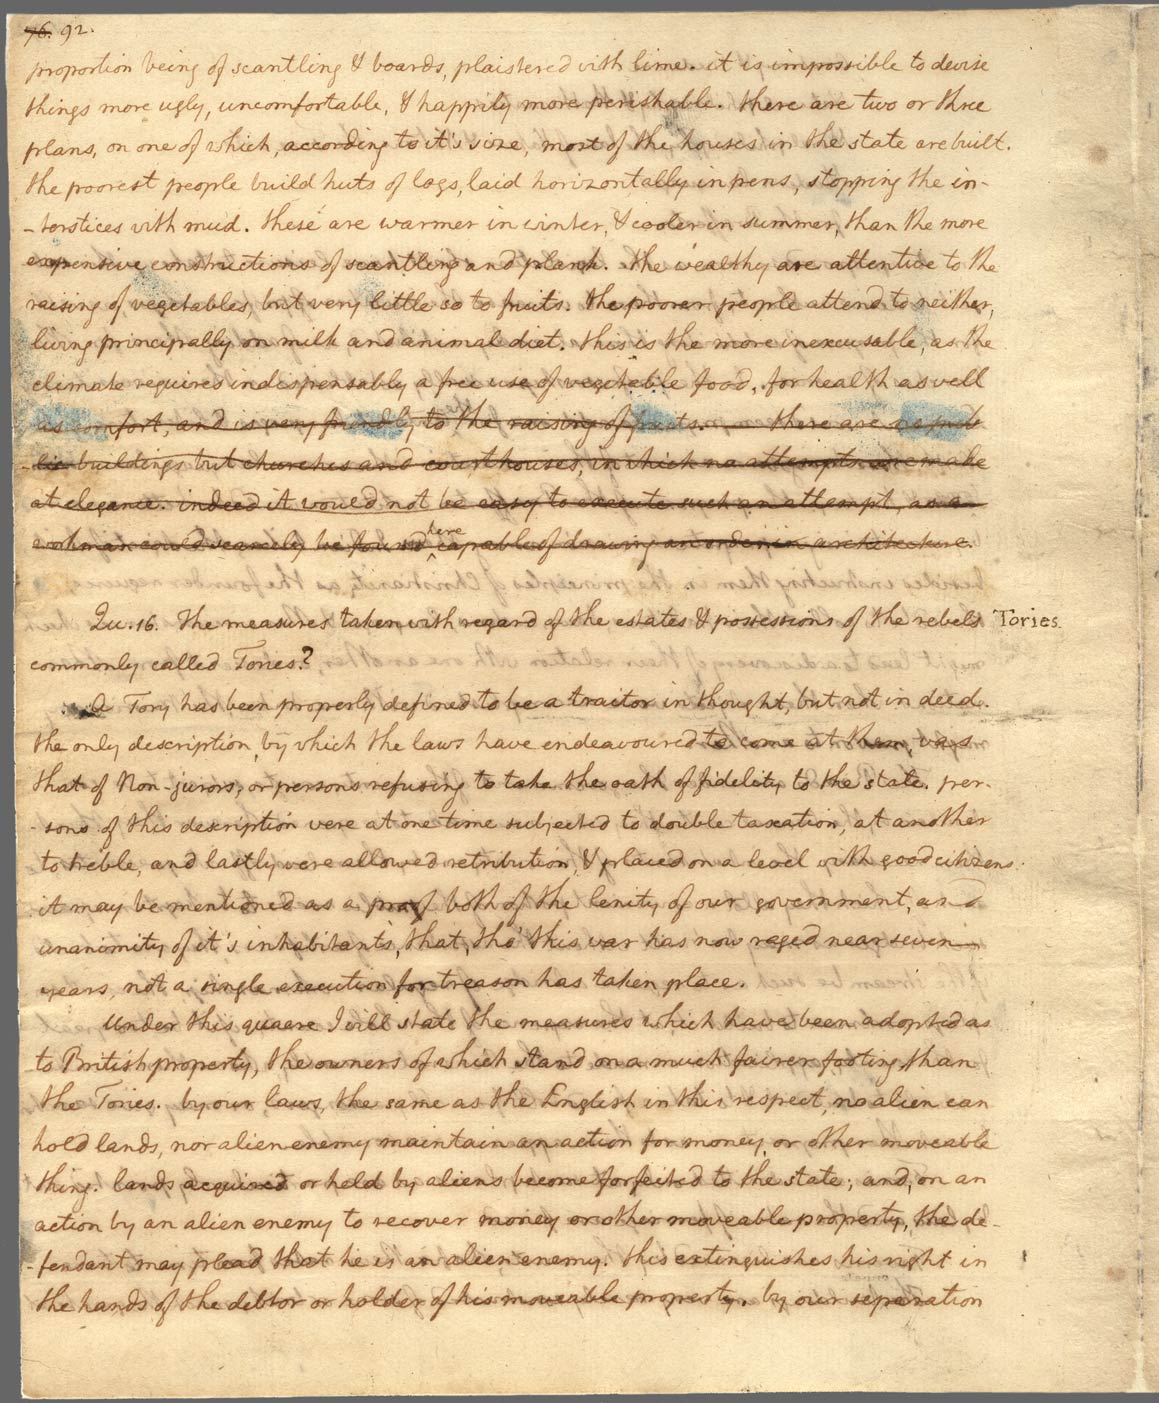 76. 92.
proportion being of scantling & boards, plaistered with lime. it is impossible to devise
things more ugly, uncomfortable, & happily more perishable. there are two or three
plans, on one of which, according to it's size, most of the houses in the state are built.
the poorest people build huts of logs, laid horizontally in pens, stopping the in-
-terstices with mud. these are warmer in winter, & cooler in summer, than the more
expensive constructions of scantling and plank. the wealthy are attentive to the
raising of vegetables, but very little so to fruits. the poorer people attend to neither,
living principally on milk and animal diet. this is the more inexcusable, as the
climate requires indispensably a free use of vegetable food, for health as well
as comfort, and is very friendly to the raising of fruits. — there are no pub-
-lic buildings but churches and courthouses, in which no attempts are made
at elegance. indeed it would not be easy to execute such an attempt, as a
workman could scarcely be found here capable of drawing an order in architecture.
Qu. 16. the measures taken with regard of the estates & possessions of the rebels Tories.
commonly called Tories?
A Tory has been properly defined to be a traitor in thought, but not in deed.
the only description, by which the laws have endeavoured to come at them, was
that of Non-jurors, or persons refusing to take the oath of fidelity to the state. per-
-sons of this description were at one time subjected to double taxation, at another
to treble, and lastly were allowed retribution, & placed on a level with good citizens.
it may be mentioned as a proof both of the lenity of our government, and
unanimity of it's inhabitants, that, tho' this war has now raged near seven
years, not a single execution for treason has taken place.
Under this quaere I will state the measures which have been adopted as
to British property, the owners of which stand on a much fairer footing than
the Tories. by our laws, the same as the English in this respect, no alien can
hold lands, nor alien enemy maintain an action for money or other moveable
thing. lands acquired or held by aliens become forfeited to the state; and, on an
action by an alien enemy to recover money or other moveable property, the de-
-fendant may plead that he is an alien enemy. this extinguishes his right in
the hands of the debtor or holder of his moveable property. by our separation